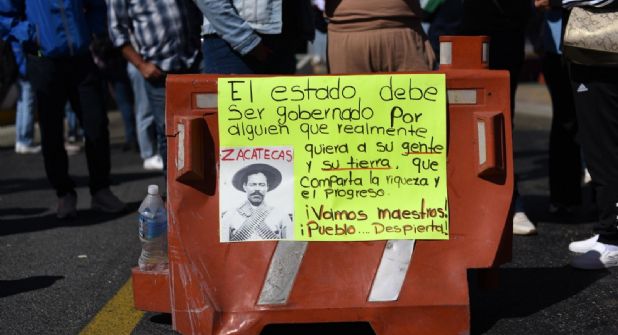 El estado debe
Ser gobernado Por
alguien que realmente
quiera a su gente
y su tierra, que
Comparta la riqueza y
el Progreso.
¡Vamos maestros!
¡Pueblo... Despierta!
ZACATECAS